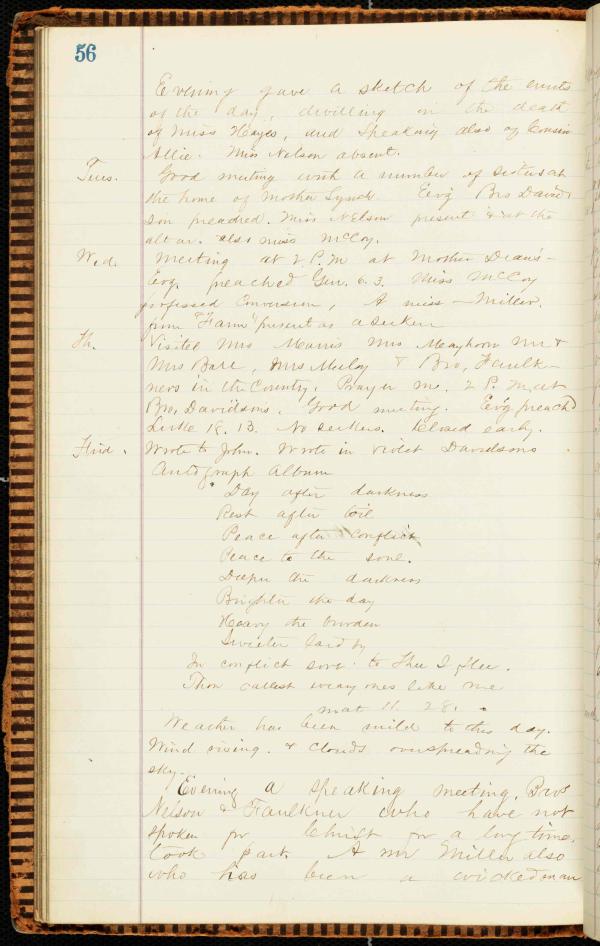 56
Evening gave a sketch of the events
of the day, dwelling on the death
of Miss Hayes, and speaking also of Cousin
Allie. Miss Nelson absent.
Tues. Good meeting with a number of sisters at
the home of Mother Lynch. Ev'g Bro David
son preached. Miss Nelson present & at the
altar. also miss McCoy.
Wed. Meeting at 2 P.M at Mother Dean's-
Evg. preached Gen. 6. 3. Miss McCoy
professed Conversion, A miss - Miller.
from "Farm" present as a seeker
Th. Visited Mrs Morris Mrs Mayhorn Mr &
Mrs Ball, Mrs & Bro, Faulk-
ners in the County. Prayer m. 2 P.M. at
Bro. Davidsons. Good meeting. Ev'g preach'd
Luke 18. 13. No seekers. Closed early.
Frid. Wrote to John. Wrote in Violet Davidsons
Autograph Album
"Day after darkness
Rest after toil
Peace after conflict
Peace to the soul.
Deeper the darkness
Brighter the day
Heavy the burden
Sweeter laid by
In conflict sore to Thee I flee.
Thou callest weary ones like me
mat 11. 28.
Weather has been mild to this day.
Wind rising. & clouds overspreading the
sky.
Evening a speaking meeting. Bros
Nelson & Faulkner who have not
spoken for Christ for a long time.
took part. A mr Miller also
who has been a wicked man